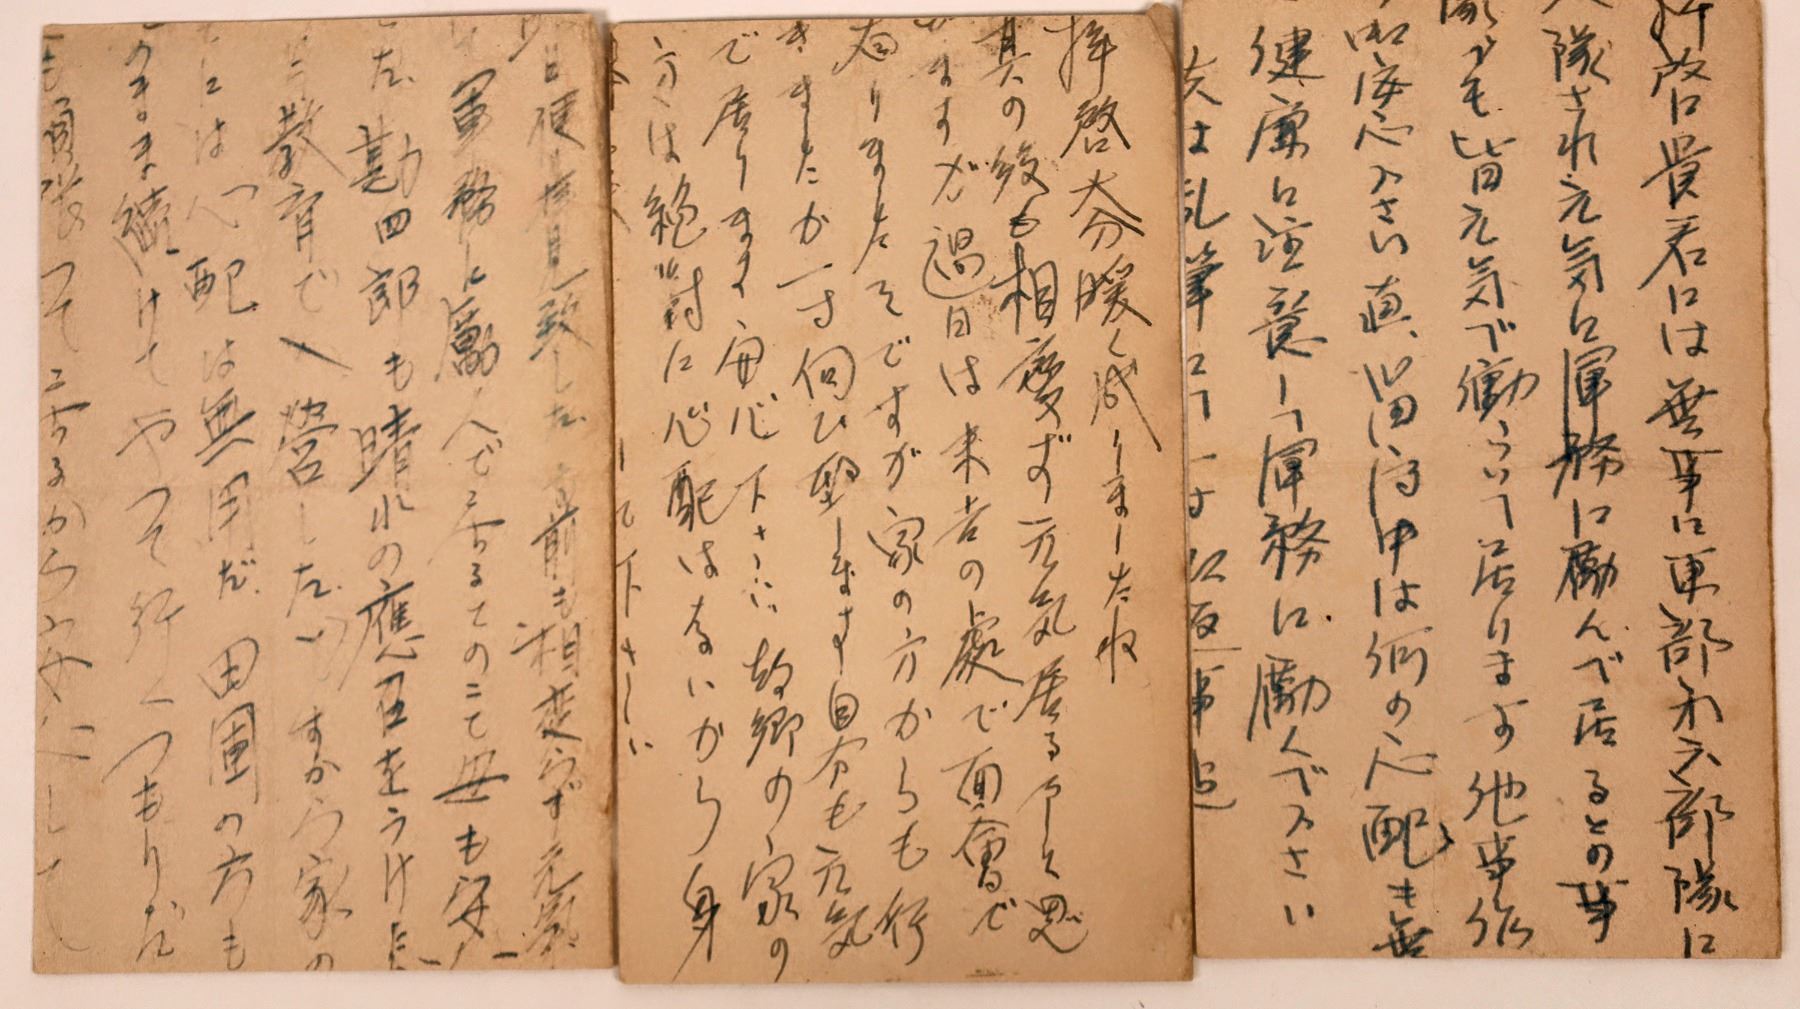 拝啓貴君には無事に東部六部隊に
入隊され元気に軍務に励んで居るとの事
家でも皆元気で働らいて居ります他事作
御安心下さい直留守中は何の心配も無
健康に注意して軍務に励んで下さい
先は乱筆にて一寸御返事迄
拝啓大分暖く成りましたね
其の後も相変ず元気居る事と思
ますが過日は末吉の處で面會で
有りましたそですが家の方からも行
きましたか一寸伺ひ致します自分も元気
で居ります安心下さい故郷の家の
方は絶対に心配はないから身
して下さい
拝見致した お前も相変らず元気
軍務に励んで居るとのこと母も安心
た 勘四郎も晴れの應召をうけた
教育で入営した すから家の
には心配は無用だ 田圃の方も
このまま續けてやって行くつもりだ
も頑張って居るから安心して